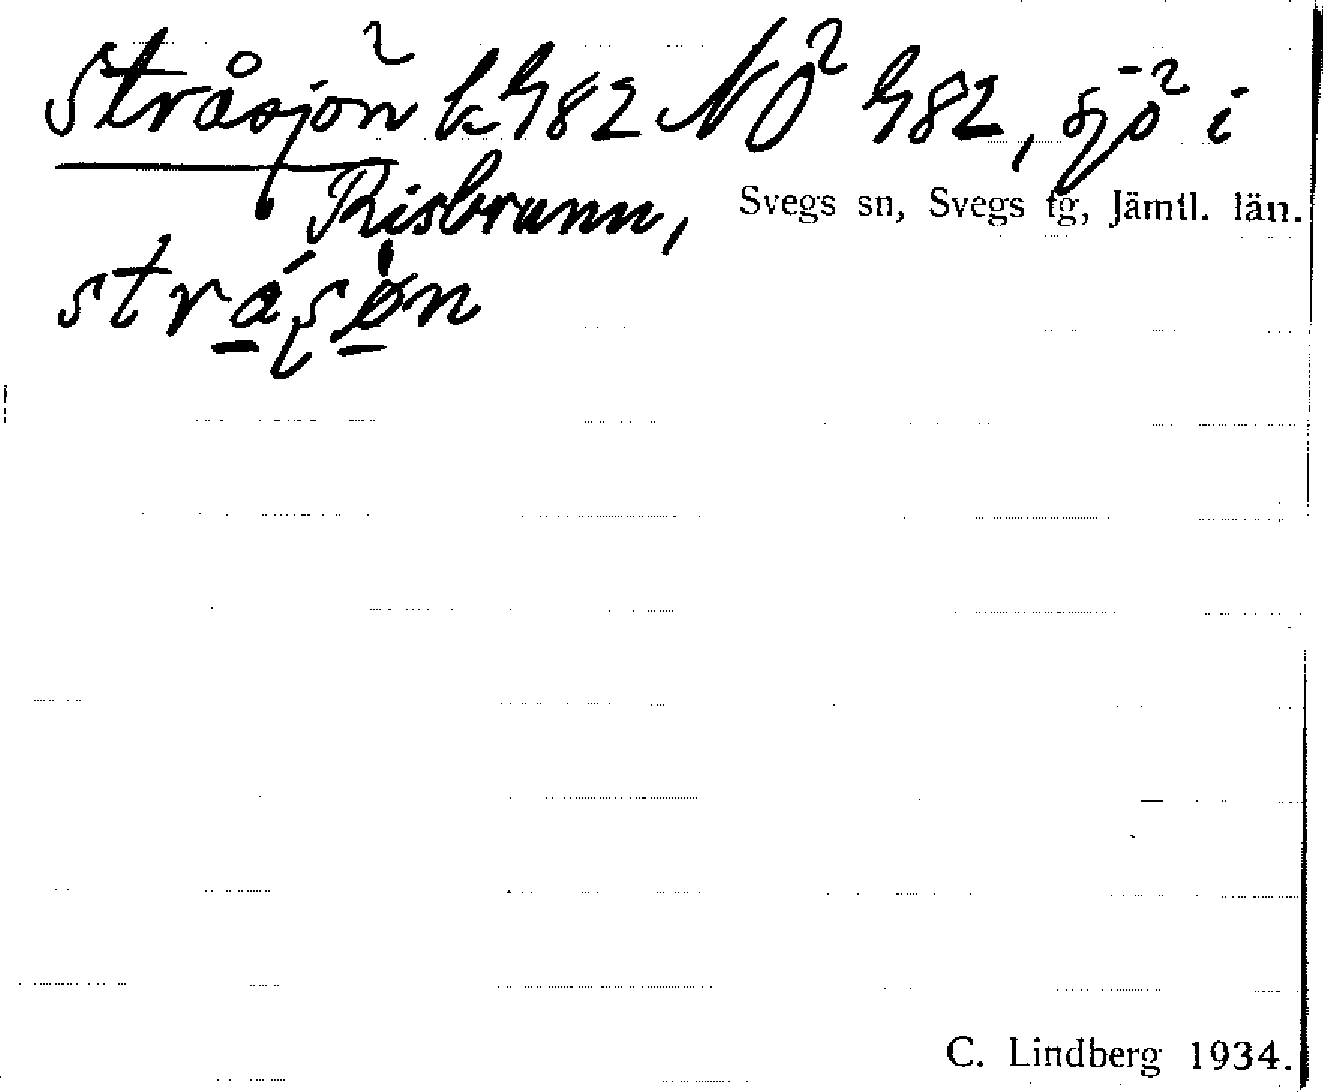 Stråsjön k h82 NÖ h82, sjö i
Risbrunn, Svegs sn, Svegs tg, Jämtl. län.
stráʂø̀n
C. Lindberg 1934.